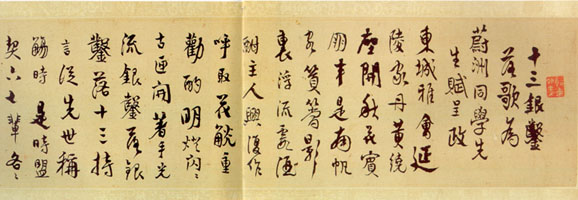 十三銀鑿
落歌為
蔚洲同學先
生賦呈政
東城雅會延
陵家丹黃繞
壁開秋花賓
朋半是南帆
客篔簹影
裏浮流霞酒
酣主人興復作
呼取花觥重
勸酌明燈閃〻
古匣開著手光
流銀鑿落銀
鑿落十三持
言從先世稱
觴時是時盟
契六七輩各〻